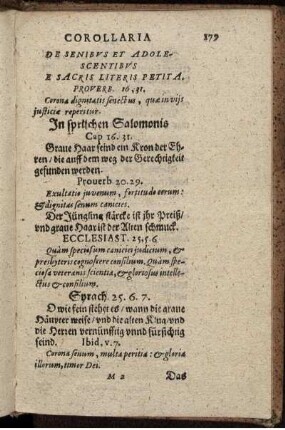 COROLLARIA 179
DE SENIBVS ET ADOLE-
SCENTIBVS
E SACRIS LITERIS PETITA.
PROVERB. 16.31.
Corona dignitatis senectus, quæ in vijs
justiciæ reperitur.
In sprüchen Salomonis
Cap 16. 31.
Grawe Haar seind ein Kron der Eh-
ren/die auff dem weg der Gerechtigkeit
gefunden werden.
Proverb 20.29.
Exultatio juvenum, fortitudo eorum:
& dignitas senum canicies.
Der Jüngling stärcke ist ihr Preiß/
vnd graue Haar ist der Alten schmuck.
ECCLESIAST. 25.5 6
Quàm speciosum canitiei judicium, & pre-
sbyteris cognoscere consilium. Quàm specio-
sa veteranis scientia, & gloriosus intelle-
ctus & consilium.
Syrach. 25. 6. 7.
O wie fein stehet es/wann die graue
Häupter weise/vnd die alten Klug/vnd
die Herren vernünfftig vnnd fürsichtig
seind. Ibid. v.7.
Corona senum, multa peritia: & gloria
illorum, timor Dei.
M 2 Das